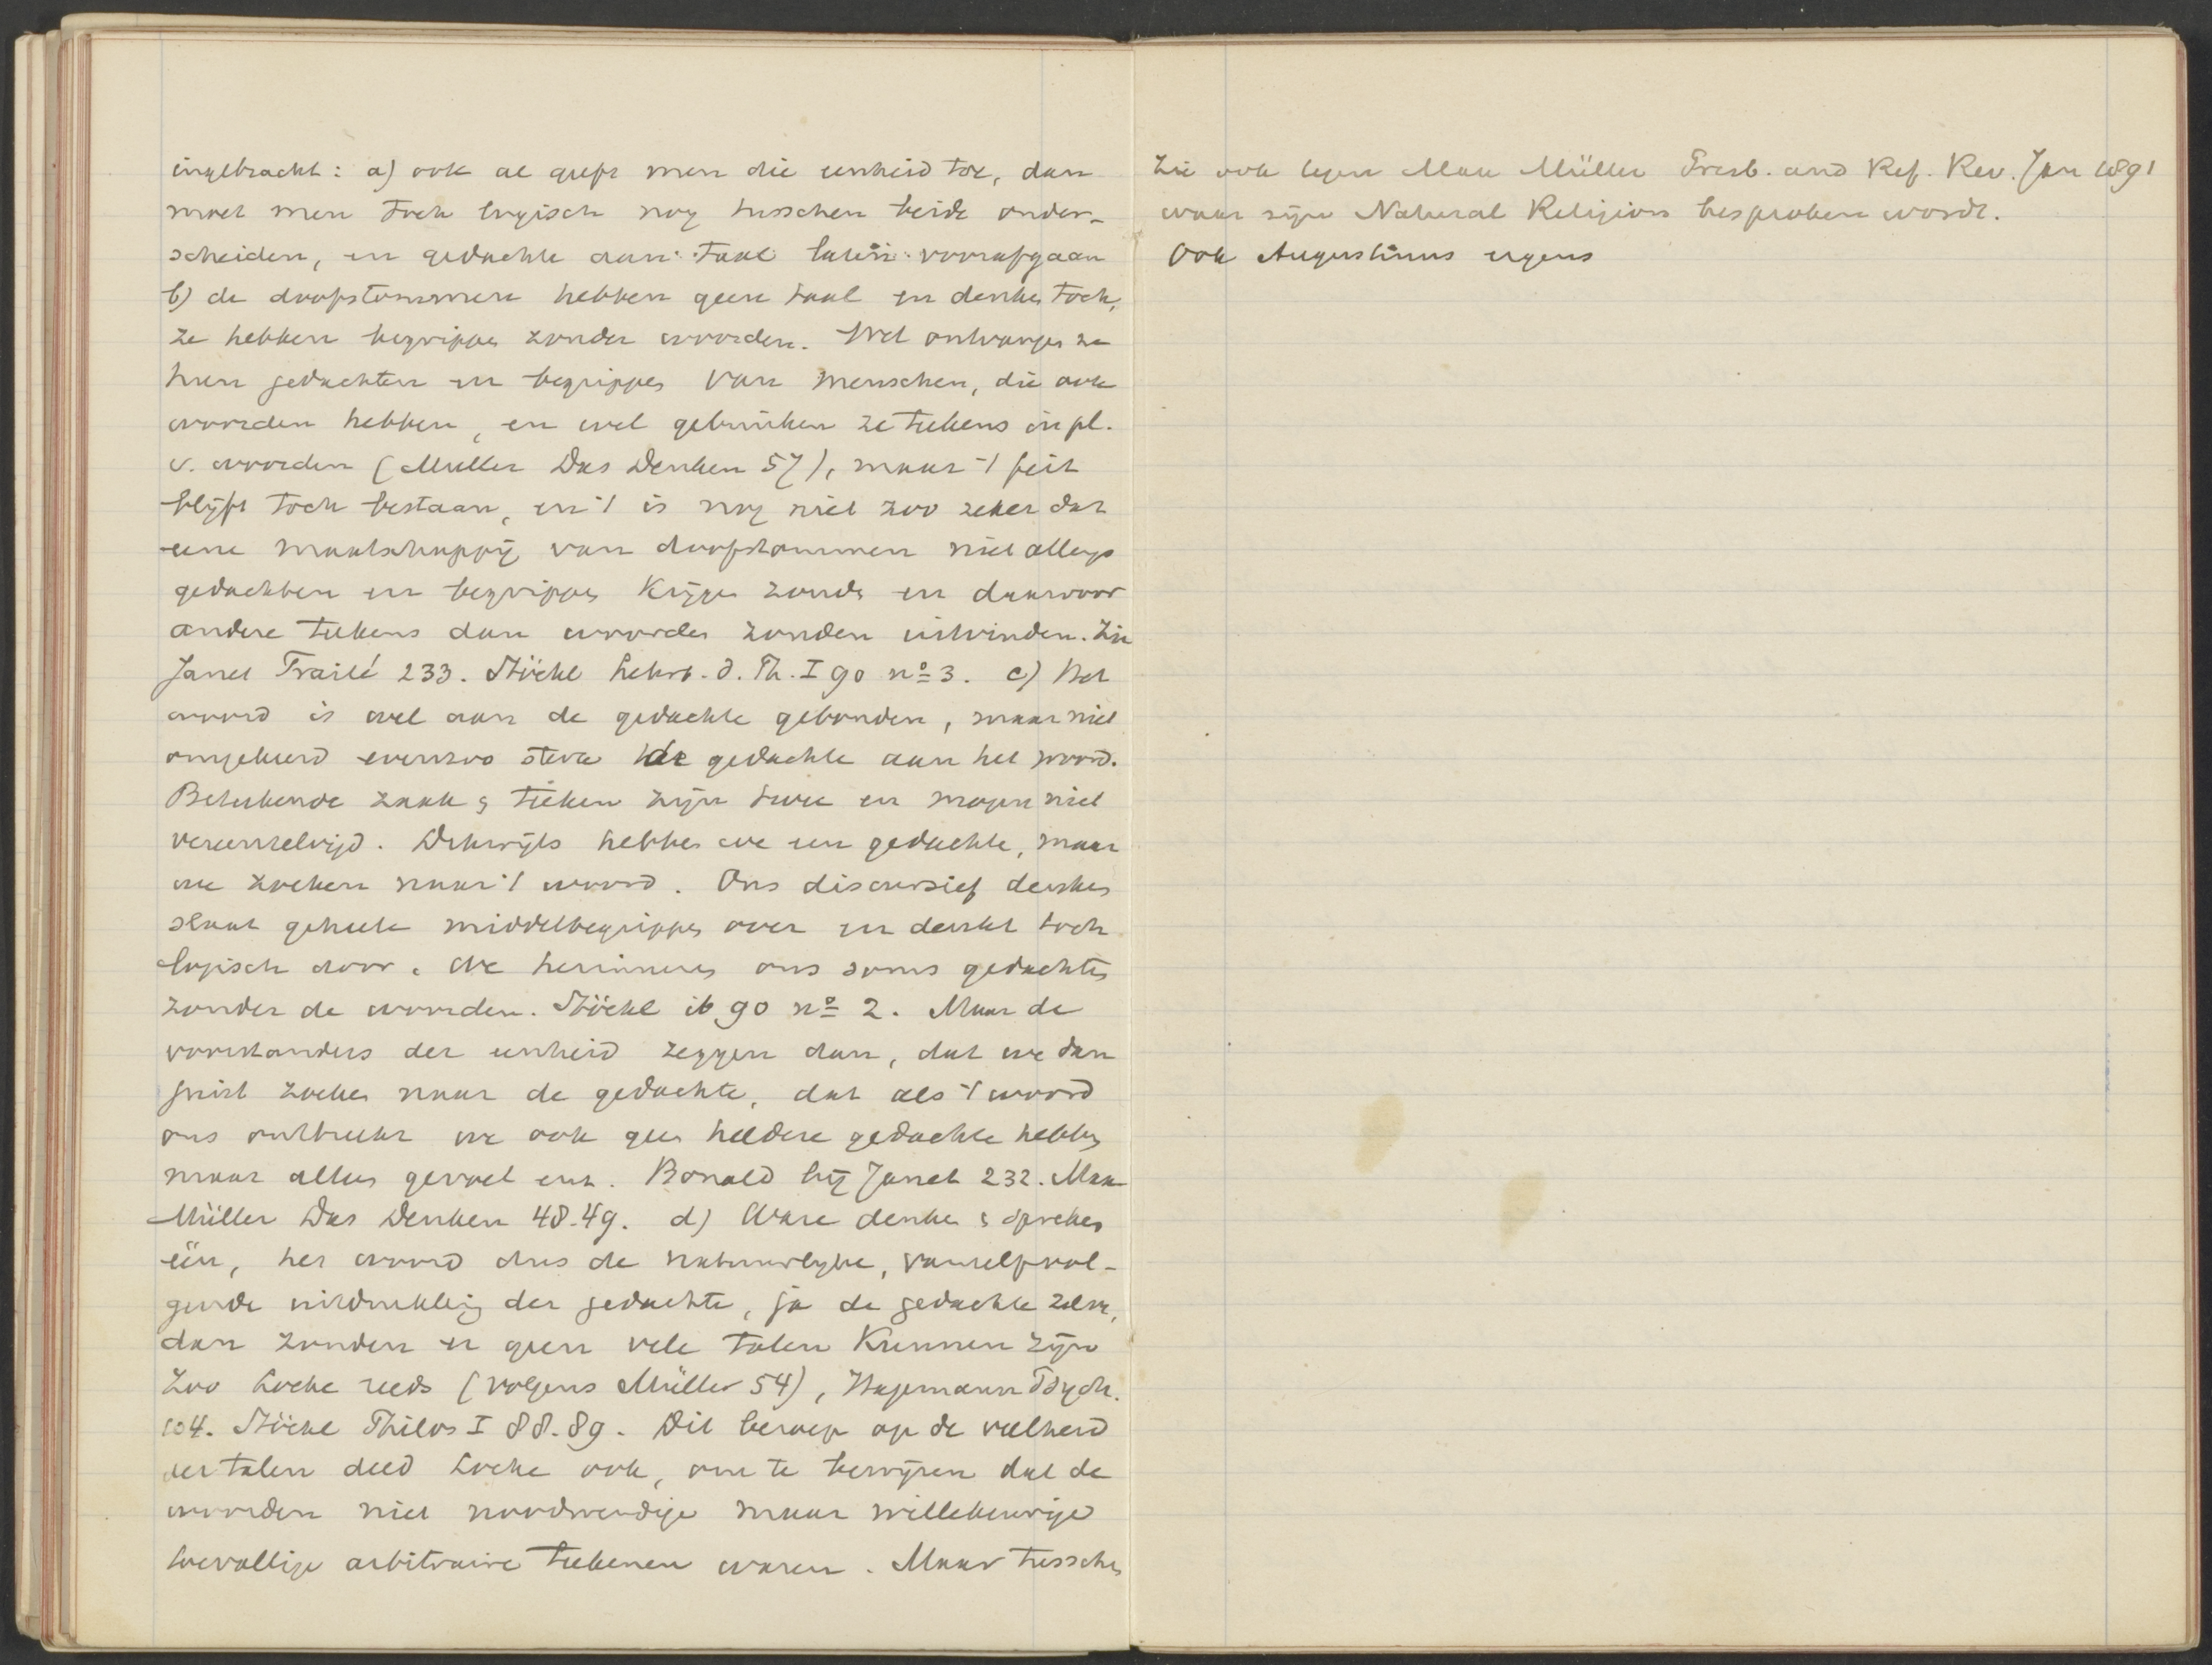 ingebracht: a) ook al geeft men die eenheid toe, dan
moet men toch logisch nog tusschen beide onder-
scheiden, en gedachte aan taal laten voorafgaan
b) de doofstommen hebben geen taal en denken toch,
ze hebben begrippen zonder woorden. Wel ontvangen ze
hun gedachten en begrippen van menschen, die ook
woorden hebben, en wel gebruiken ze teekens in pl.
v. woorden (Müller Das Denken 57), maar 't feit
blijft toch bestaan, en 't is nog niet zoo zeker dat
eene maatschappij van doofstommen niet allengs
gedachten en begrippen krijgen zoude en daarvoor
andere teekens dan woorden zouden uitvinden. Zie
Janet Traité 233. Stöckl Lehrb. d. Ph. I 90 no 3. c) Het
woord is wel aan de gedachte gebonden, maar niet
omgekeerd evenzoo sterk de gedachte aan het woord.
Beteekende zaak & teeken zijn twee en mogen niet
vereenzelvigd. Dikwijls hebben we een gedachte, maar
we zoeken naar 't woord. Ons discursief denken
slaat geheele middelbegrippen over en denkt toch
logisch door. We herinneren ons soms gedachten
zonder de woorden. Stöckl ib 90 no 2. Maar de
voorstanders der eenheid zeggen dan, dat we dan
juist zoeken naar de gedachte, dat als 't woord
ons ontbreekt we ook geen heldere gedachte hebben
maar alleen gevoel enz. Bonald bij Janet 232. Max
Müller Das Denken 48-49. d) Ware denken & spreken
één, het woord dus de natuurlyke, vanzelfvol-
gende uitdrukking der gedachte, ja de gedachte zelve,
dan zouden er geen vele talen kunnen zijn
Zoo Locke reeds (volgens Müller 54), Hagemann Psych.
104. Stöckl Philos I 88.89. Dit beroep op de veelheid
der talen deed Locke ook, om te bewijzen dat de
woorden niet noodwendige maar willekeurige
toevallige arbitraire teekenen waren. Maar tusschen
Zie ook tegen Max Müller Presb. and Ref. Rev. Jan 1891
waar zijn Natural Religion besproken wordt.
Ook Augustinus ergens